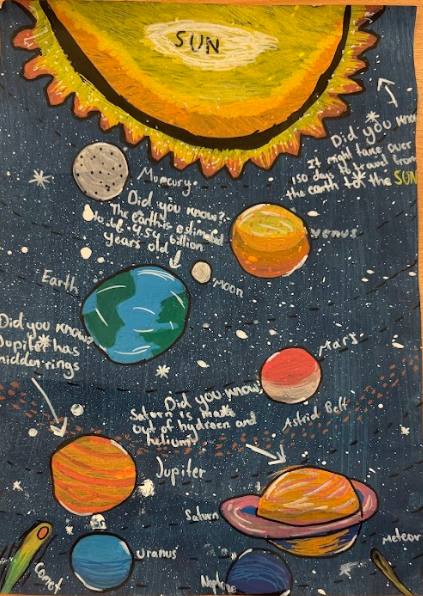 SUN
Did you know
It might take over
150 days to travel from
the earth to the SUN
Mercury
Did you know?
The earth is estimated
to be 4.54 billion
years old
Venus
Earth
Moon
Did you know
Jupiter has
hidden rings
Mars
Did you know
Saturn is made
out of hydroen and
helium?
Astrid Belt
Jupiter
Saturn
Meteor
Uranus
Comet
Neptune